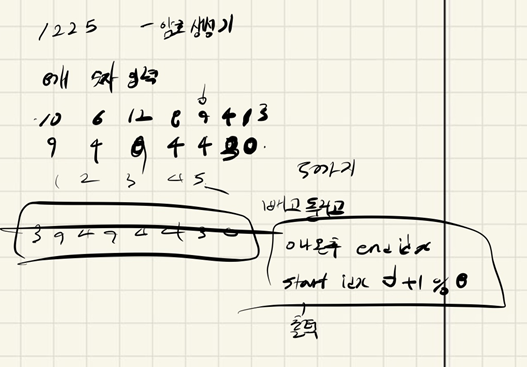 1225 - 암호 생성기
8개 숫자 입력
10 6 12 8 9 4 1 3
9 4 9 4 4 3 0
1 2 3 4 5
5까지
빼고 돌리고
3 9 4 9 4 4 3 0
0 나온후 end idx
start idx +1 % 8
출력